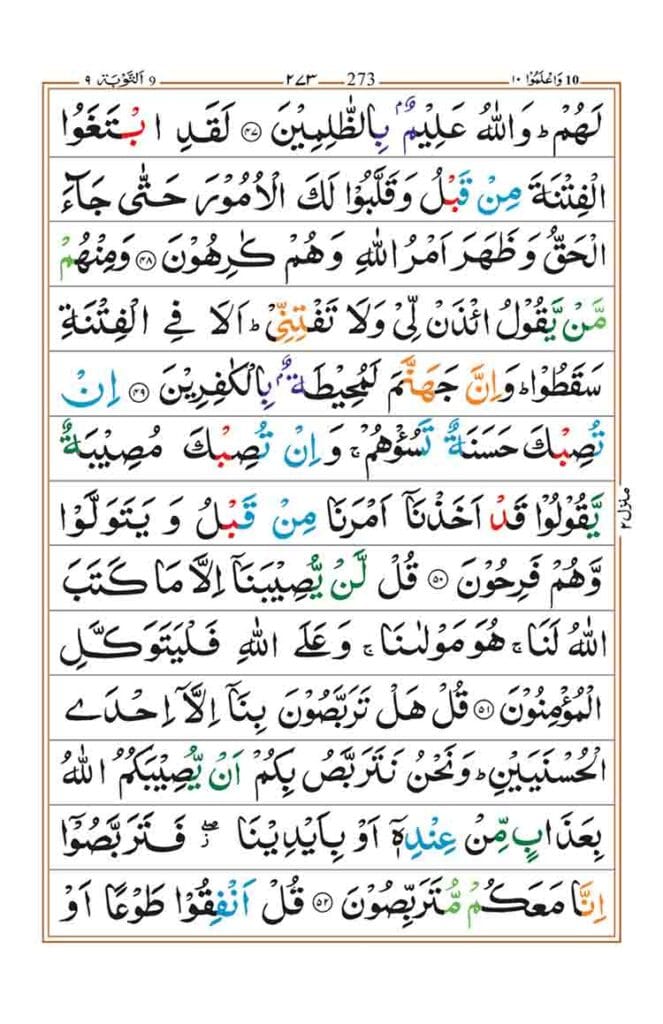 10 وَاعْلَمُوْا ١٠ 273 ٢٧٣ 9 اَلتَّوْبَة ٩
لَهُمْ ؕ وَاللّٰهُ عَلِيْمٌۢ بِالظّٰلِمِيْنَ ۝۴۷ لَقَدِ ابْتَغَوُا
الْفِتْنَةَ مِنْ قَبْلُ وَقَلَّبُوْا لَكَ الْاُمُوْرَ حَتّٰى جَآءَ
الْحَقُّ وَظَهَرَ اَمْرُ اللّٰهِ وَهُمْ كٰرِهُوْنَ ۝۴۸ وَمِنْهُمْ
مَّنْ يَّقُوْلُ ائْذَنْ لِّىْ وَلَا تَفْتِنِّىْ ؕ اَلَا فِى الْفِتْنَةِ
سَقَطُوْا ؕ وَاِنَّ جَهَنَّمَ لَمُحِيْطَةٌۢ بِالْكٰفِرِيْنَ ۝۴۹ اِنْ
تُصِبْكَ حَسَنَةٌ تَسُؤْهُمْ ۚ وَاِنْ تُصِبْكَ مُصِيْبَةٌ
يَّقُوْلُوْا قَدْ اَخَذْنَاۤ اَمْرَنَا مِنْ قَبْلُ وَيَتَوَلَّوْا
وَّهُمْ فَرِحُوْنَ ۝۵۰ قُلْ لَّنْ يُّصِيْبَنَاۤ اِلَّا مَا كَتَبَ
اللّٰهُ لَنَا ۚ هُوَ مَوْلٰىنَا ۚ وَعَلَى اللّٰهِ فَلْيَتَوَكَّلِ
الْمُؤْمِنُوْنَ ۝۵۱ قُلْ هَلْ تَرَبَّصُوْنَ بِنَاۤ اِلَّاۤ اِحْدَى
الْحُسْنَيَيْنِ ؕ وَنَحْنُ نَتَرَبَّصُ بِكُمْ اَنْ يُّصِيْبَكُمُ اللّٰهُ
بِعَذَابٍ مِّنْ عِنْدِهٖۤ اَوْ بِاَيْدِيْنَا ۖز فَتَرَبَّصُوْۤا
اِنَّا مَعَكُمْ مُّتَرَبِّصُوْنَ ۝۵۲ قُلْ اَنْفِقُوْا طَوْعًا اَوْ
منزل ٢